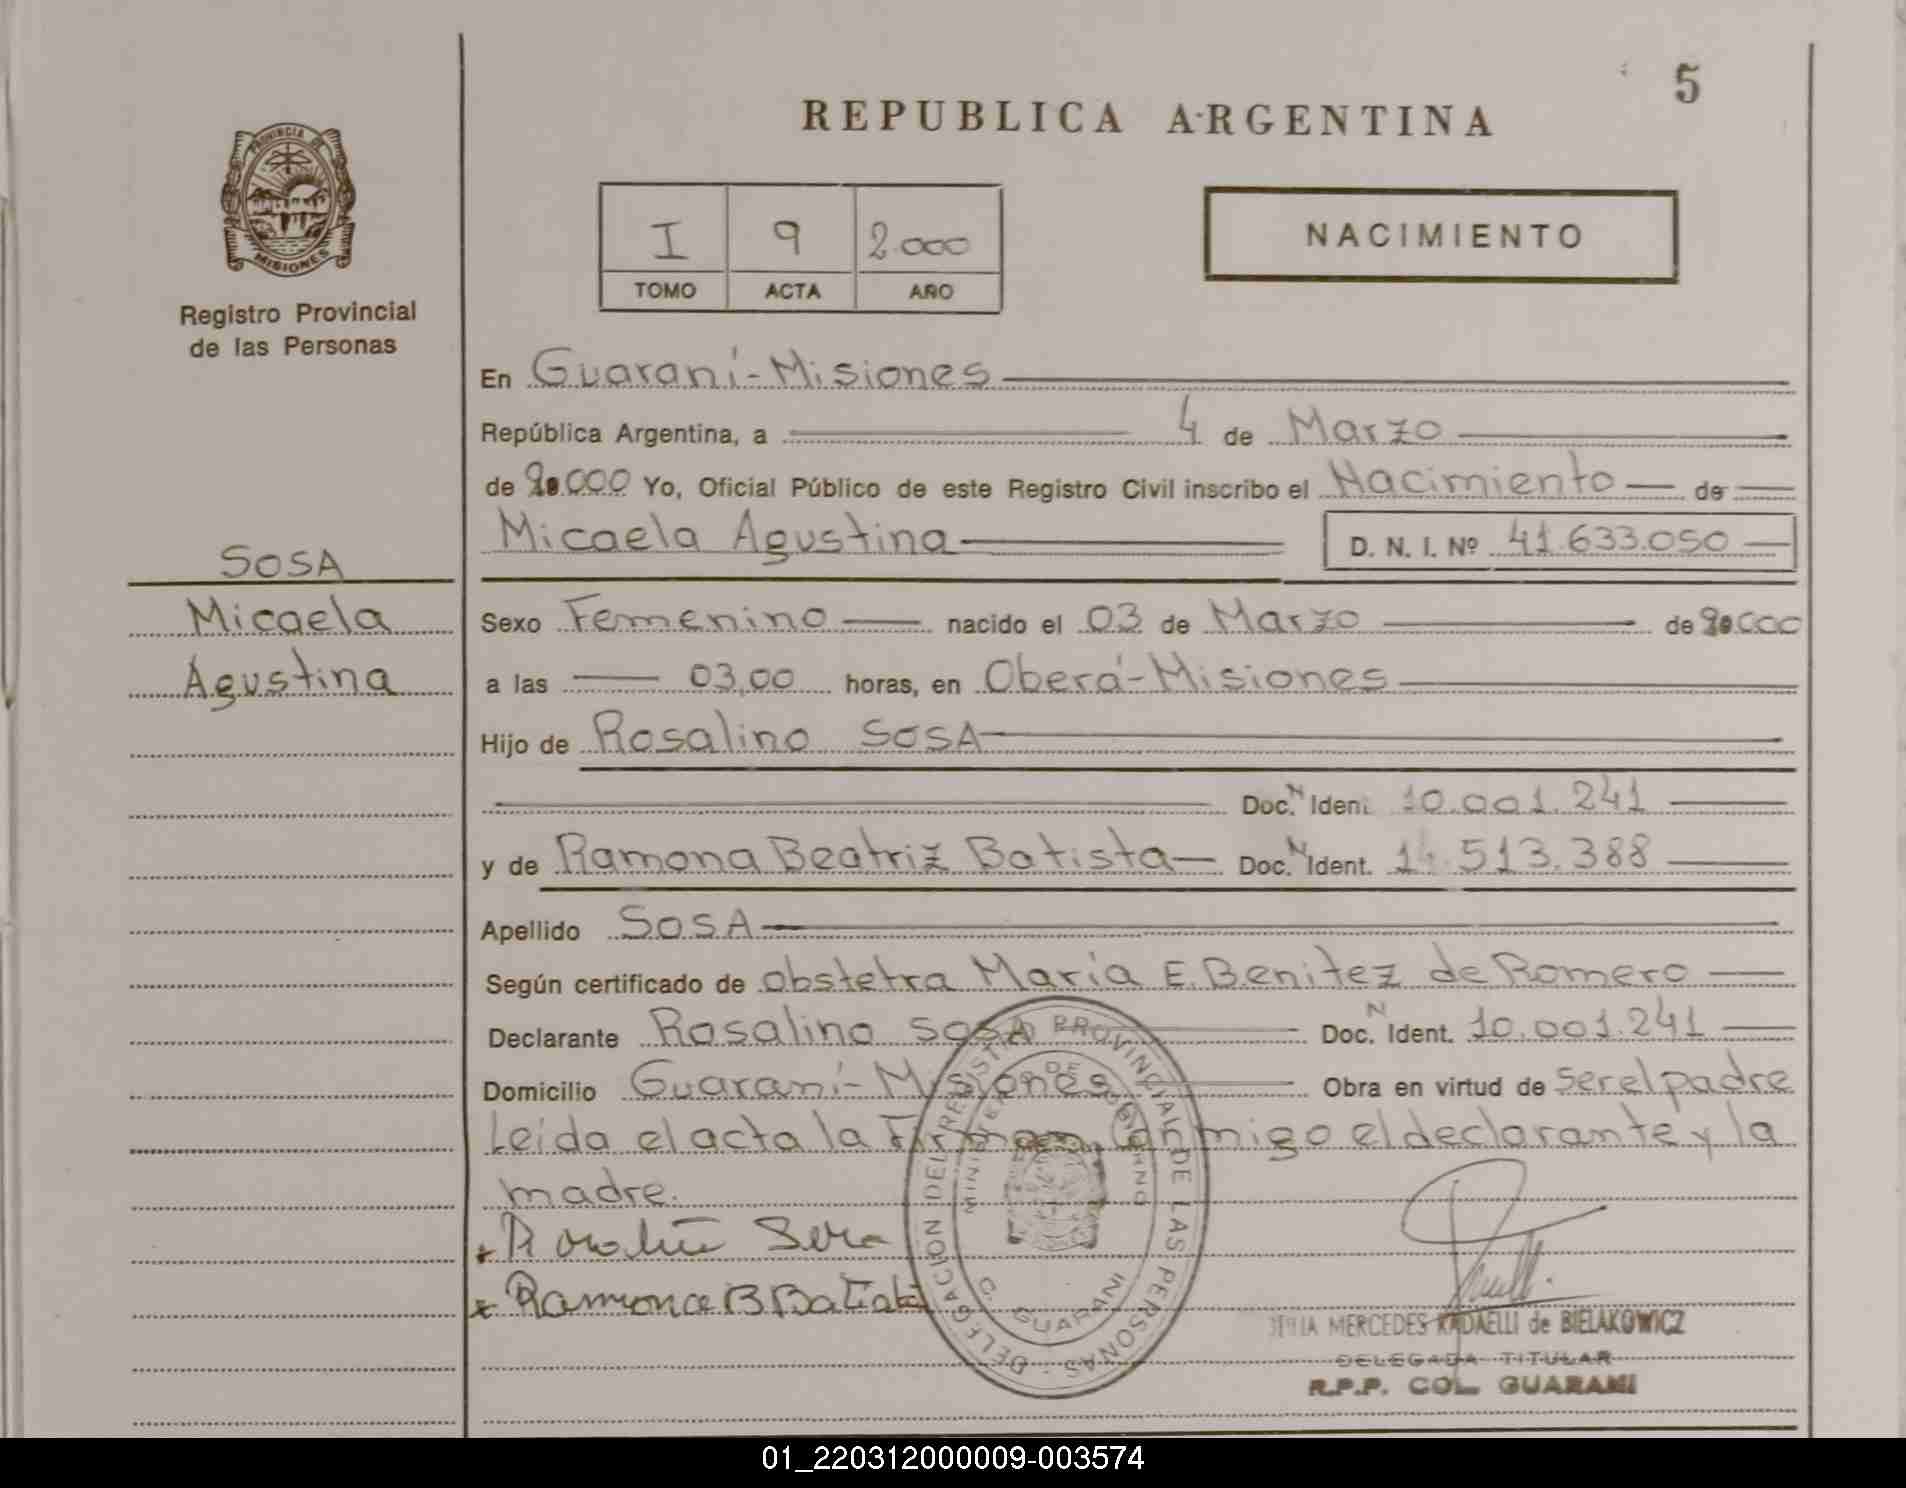 5
REPUBLICA ARGENTINA
PROVINCIA DE
MISIONES
Registro Provincial
de las Personas
I 9 2.000
TOMO ACTA AÑO
NACIMIENTO
En Guaraní-Misiones
República Argentina, a 4 de Marzo
de 2.000 Yo, Oficial Público de este Registro Civil inscribo el Nacimiento de
Micaela Agustina D. N. I. Nº 41.633.050
SOSA
Micaela
Agustina
Sexo Femenino nacido el 03 de Marzo de 2.000
a las 03,00 horas, en Oberá-Misiones
Hijo de Rosalino SOSA
Doc. N Iden. 10.001.241
y de Ramona Beatriz Batista Doc. N Ident. 14.513.388
Apellido SOSA
Según certificado de obstetra María E. Benitez de Romero
Declarante Rosalino SOSA Doc. N Ident. 10.001.241
Domicilio Guaraní-Misiones Obra en virtud de ser el padre
Leida el acta la Firman Conmigo el declarante y la
madre.
Ramona B Batista
DELEGACION DEL REGISTRO PROVINCIAL DE LAS PERSONAS
MINISTERIO DE GOBIERNO
C. GUARANI
MERCEDES RADAELLI de BIELAKOWICZ
DELEGADA TITULAR
R.P.P. COL. GUARANI
01_220312000009-003574